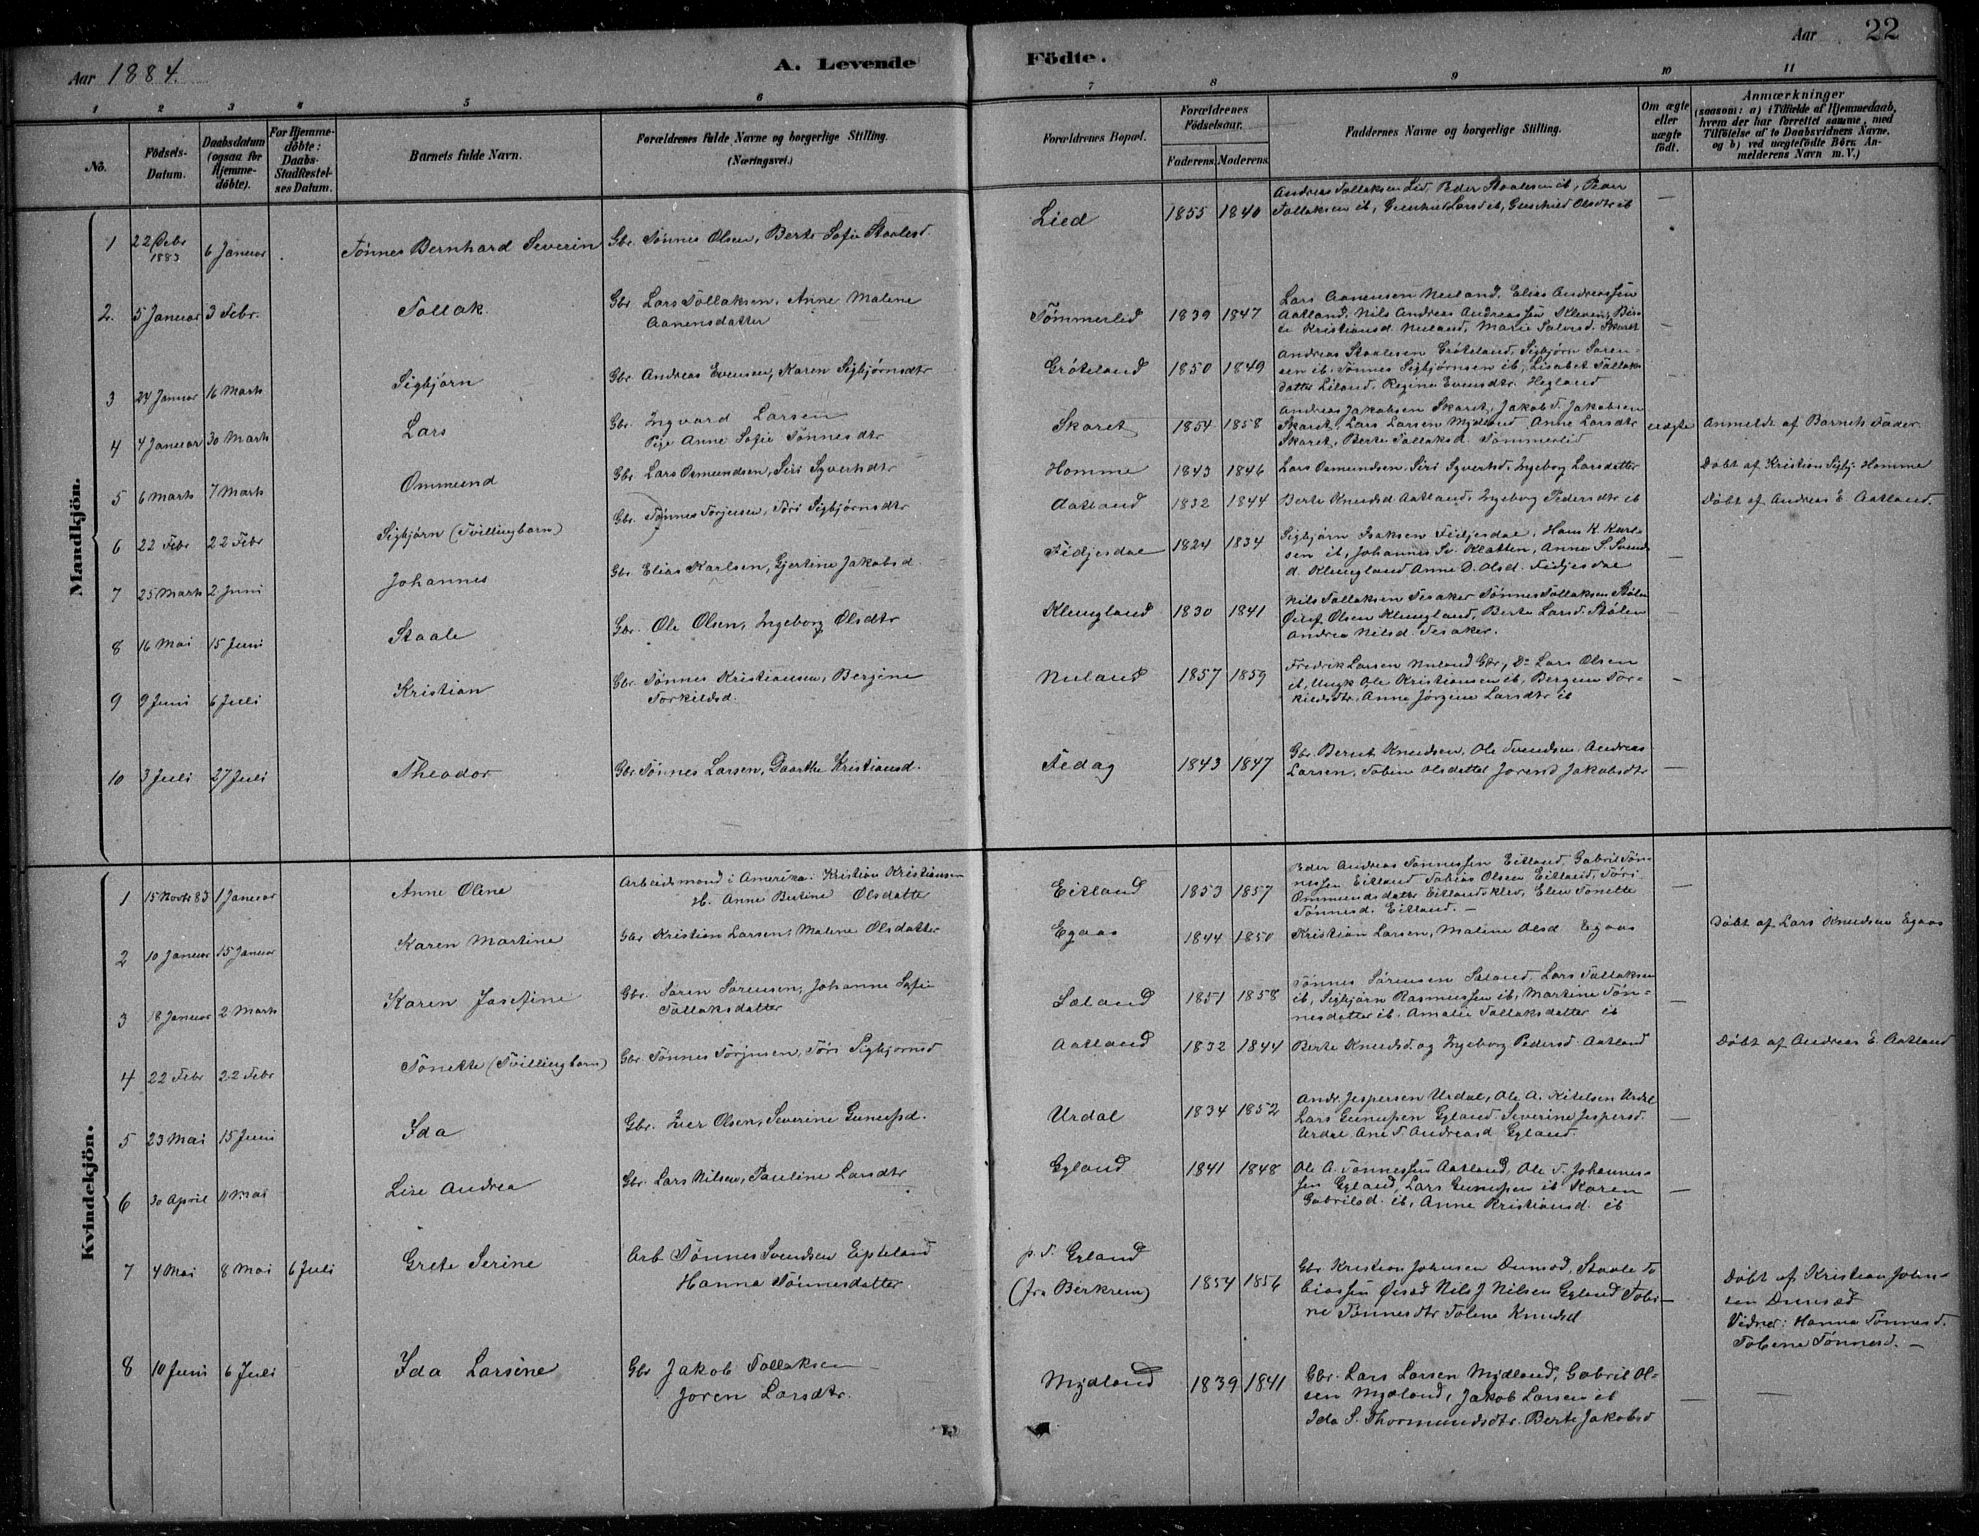 Aar 1884.
A. Levende Födte.
Aar 22
1 2 3 4 5 6 7 8 9 10 11
No.
Födsels-Datum.
Daabsdatum (ogsaa for Hjemme-döbte).
For Hjemme-döbte: Daabs-Stadfæstel-ses Datum.
Barnets fulde Navn.
Forældrenes fulde Navne og borgerlige Stilling. (Næringsvei.)
Forældrenes Bopæl.
Forældrenes Födselsaar.
Faderens. Moderens.
Faddernes Navne og borgerlige Stilling.
Om ægte eller uægte födt.
Anmærkninger (saasom: a) i Tilfælde af Hjemmedaab, hvem der har forrettet samme, med Tilföielse af to Daabsvidners Navne, og b) ved uægtefödte Börn An-melderens Navn m. V.)
Mandkjön.
1 22 Debr 1883 6 Januar Tønnes Bernhard Severin Gbr. Tønnes Olsen, Berte Sofie Staalesd. Lied 1855 1840 Andreas Tollaksen Lid, Peder Staalesen ib, Peder
Tollaksen ib, Gunhild Larsd ib, Gunhild Olsdtr ib —
2. 5 Januar 3 Febr. Tollak. Gbr Lars Tollaksen, Anne Malene
Aanensdatter Tømmerlid 1839 1847 Lars Aanensen Nuland, Elias Andreassen
Aatland, Nils Andreas Andreassen Kleven, Ber-
te Kristiansd. Nuland, Marie Salvesd. Skaret —
3 24 Januar 16 Marts Sigbjørn Gbr. Andreas Evensen, Karen Sigbjørnsdtr Grøteland 1850 1849 Andreas Staalesen Grøteland, Sigbjørn Søren-
sen ib. Tønnes Sigbjørnsen ib, Lisabet Tollaks-
datter Liland, Regine Evensdtr. Hegland —
4 4 Januar 30 Marts Lars Gbr. Ingvard Larsen
Pige Anne Sofie Tønnesdtr Skaret 1854 1858 Andreas Jakobsen Skaret, Jakob T. Jakobsen
Skaret, Lars Larsen Mydland, Anne Larsdtr
Skaret, Berte Tollaksd. Tømmerlid uægte Anmeldt af Barnets Fader
5 6 Marts 7 Marts Ommund Gbr Lars Osmundsen, Siri Syvertsdtr Homme 1843 1846 Lars Osmundsen, Siri Syvertsd, Ingeborg Larsdatter Døbt af Kristian Sigbj. Homme
6 22 Febr 22 Febr Sigbjørn (Tvillingbarn) Gbr. Tønnes Torjusen, Tøri Sigbjørnsdtr Aatland 1832 1844 Berte Knudsd Aatland, Ingeborg Pedersdtr ib Døbt af Andreas E. Aatland.
7 25 Marts 2 Juni Johannes Gbr Elias Karlsen, Gjertine Jakobsd. Fidjesdal 1824 1834 Sigbjørn Isaksen Fidjesdal, Hans K. Karl-
sen ib, Johannes Sv. Klatten, Anne S. Svends-
d. Klungland Anne D. Olsd. Fidjesdal —
8 16 Mai 15 Juni Staale Gbr. Ole Olsen, Ingeborg Olsdtr Klungland 1830 1841 Nils Tollaksen Tesaker Tønnes Tollaksen Stølen
Olsen Klungland, Berte Larsd. Stølen
Andrea Nilsd. Tesaker. —
9 9 Juni 6 Juli Kristian Gbr. Tønnes Kristiansen, Bergine
Torkildsd. Nuland 1857 1859 Fredrik Larsen Nuland Gbr, Do Lars Olsen
ib, Ungk Ole Kristiansen ib, Bergine Tor-
kildsdtr. Anne Jørgine Larsdtr ib —
10 3 Juli 27 Juli Theodor Gbr Tønnes Larsen, Daarthe Kristiansd. Aedag 1843 1847 Gbr. Bernt Knudsen, Ole Svendsen, Andreas
Larsen, Tobine Olsdatter Jorend Jakobsdtr —
Kvindekjön.
1 15 Novbr 83 1 Januar Anne Oline Arbeidsmand i Amerika: Kristian Kristiansen
H. Anne Bertine Olsdatter Eitland 1853 1857 Peder Andreas Tønnessen Eitland, Gabriel Tøn-
nessen Eitland Tobias Olsen Eitland, Tøri
Ommundsdatter Eitlandsklev, Elen Tonette
Tønnesd. Eitland. — —
2 10 Januar 15 Januar Karen Martine Gbr Kristian Larsen, Malene Olsdatter Egaas 1844 1850 Kristian Larsen, Maline Olsd Egaas Døbt af Lars Knudsen Egaas
3 18 Januar 2 Marts Karen Josefine Gbr. Søren Sørensen, Johanne Sofie
Tollaksdatter Søland 1851 1858 Tønnes Sørensen Søland, Lars Tollaksen
ib, Sigbjørn Rasmussen ib, Martine Tøn-
nesdatter ib. Amalie Tollaksdatter ib —
4 22 Febr 22 Febr Tønette (Tvillingbarn) Gbr. Tønnes Torjusen, Tøri Sigbjørnsd Aatland 1832 1844 Berte Knudsd. og Ingeborg Pedersd. Aatland Døbt af Andreas E. Aatland
5 23 Mai 15 Juni Ida Gbr. Iver Olsen, Severine Gunufsd. Urdal 1834 1852 Andr. Jespersen Urdal, Ole A. Kitelsen Urdal
Lars Gunufsen Gyland Severine Jespersd.
Urdal Ane T. Andreasd Gyland —
6 30 April 11 Mai Lise Andrea Gbr. Lars Nilsen, Pauline Larsdtr Gyland 1841 1848 Ole A. Tønnessen Aatland, Ole T. Johannes-
sen Gyland, Lars Gunufsen ib Karen
Gabrielsd. ib, Anne Kristiansd. ib —
7 4 Mai 8 Mai 6 Juli Grete Serine Arb Tønnes Svendsen Epteland
Hanna Tønnesdatter. p. t. Gyland
(fra Birkrem) 1854 1856 Gbr Kristian Johnsen Dunsæd, Staale To
biassen Nils J Nilsen Gyland Tobi-
ne Tønnesdtr Tolene Knudsd — Døbt af Kristian John-
sen Dunsæd
Vidner: Hanna Tønnesd.
Tobine Tønnesd. —
8 10 Juni 6 Juli Ida Larsine Gbr Jakob Tollaksen —
Joren Larsdtr. Mydland 1839 1841 Gbr. Lars Larsen Mydland, Gabriel Ol-
sen Mydland, Jakob Larsen ib
Ida S. Thormundsdtr. Berte Jakobsd — —